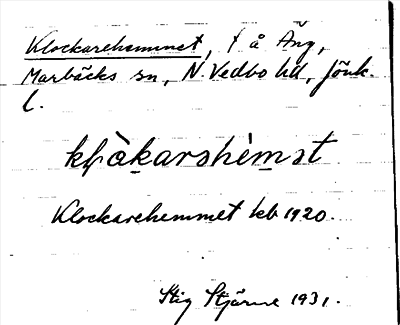 Klockarehemmet, t å Äng,
Marbäcks sn, N. Vedbo hd, Jönk.
l.
kḷòkarshèmət
Klockarehemmet kb 1920.
Stig Stjärne 1931.